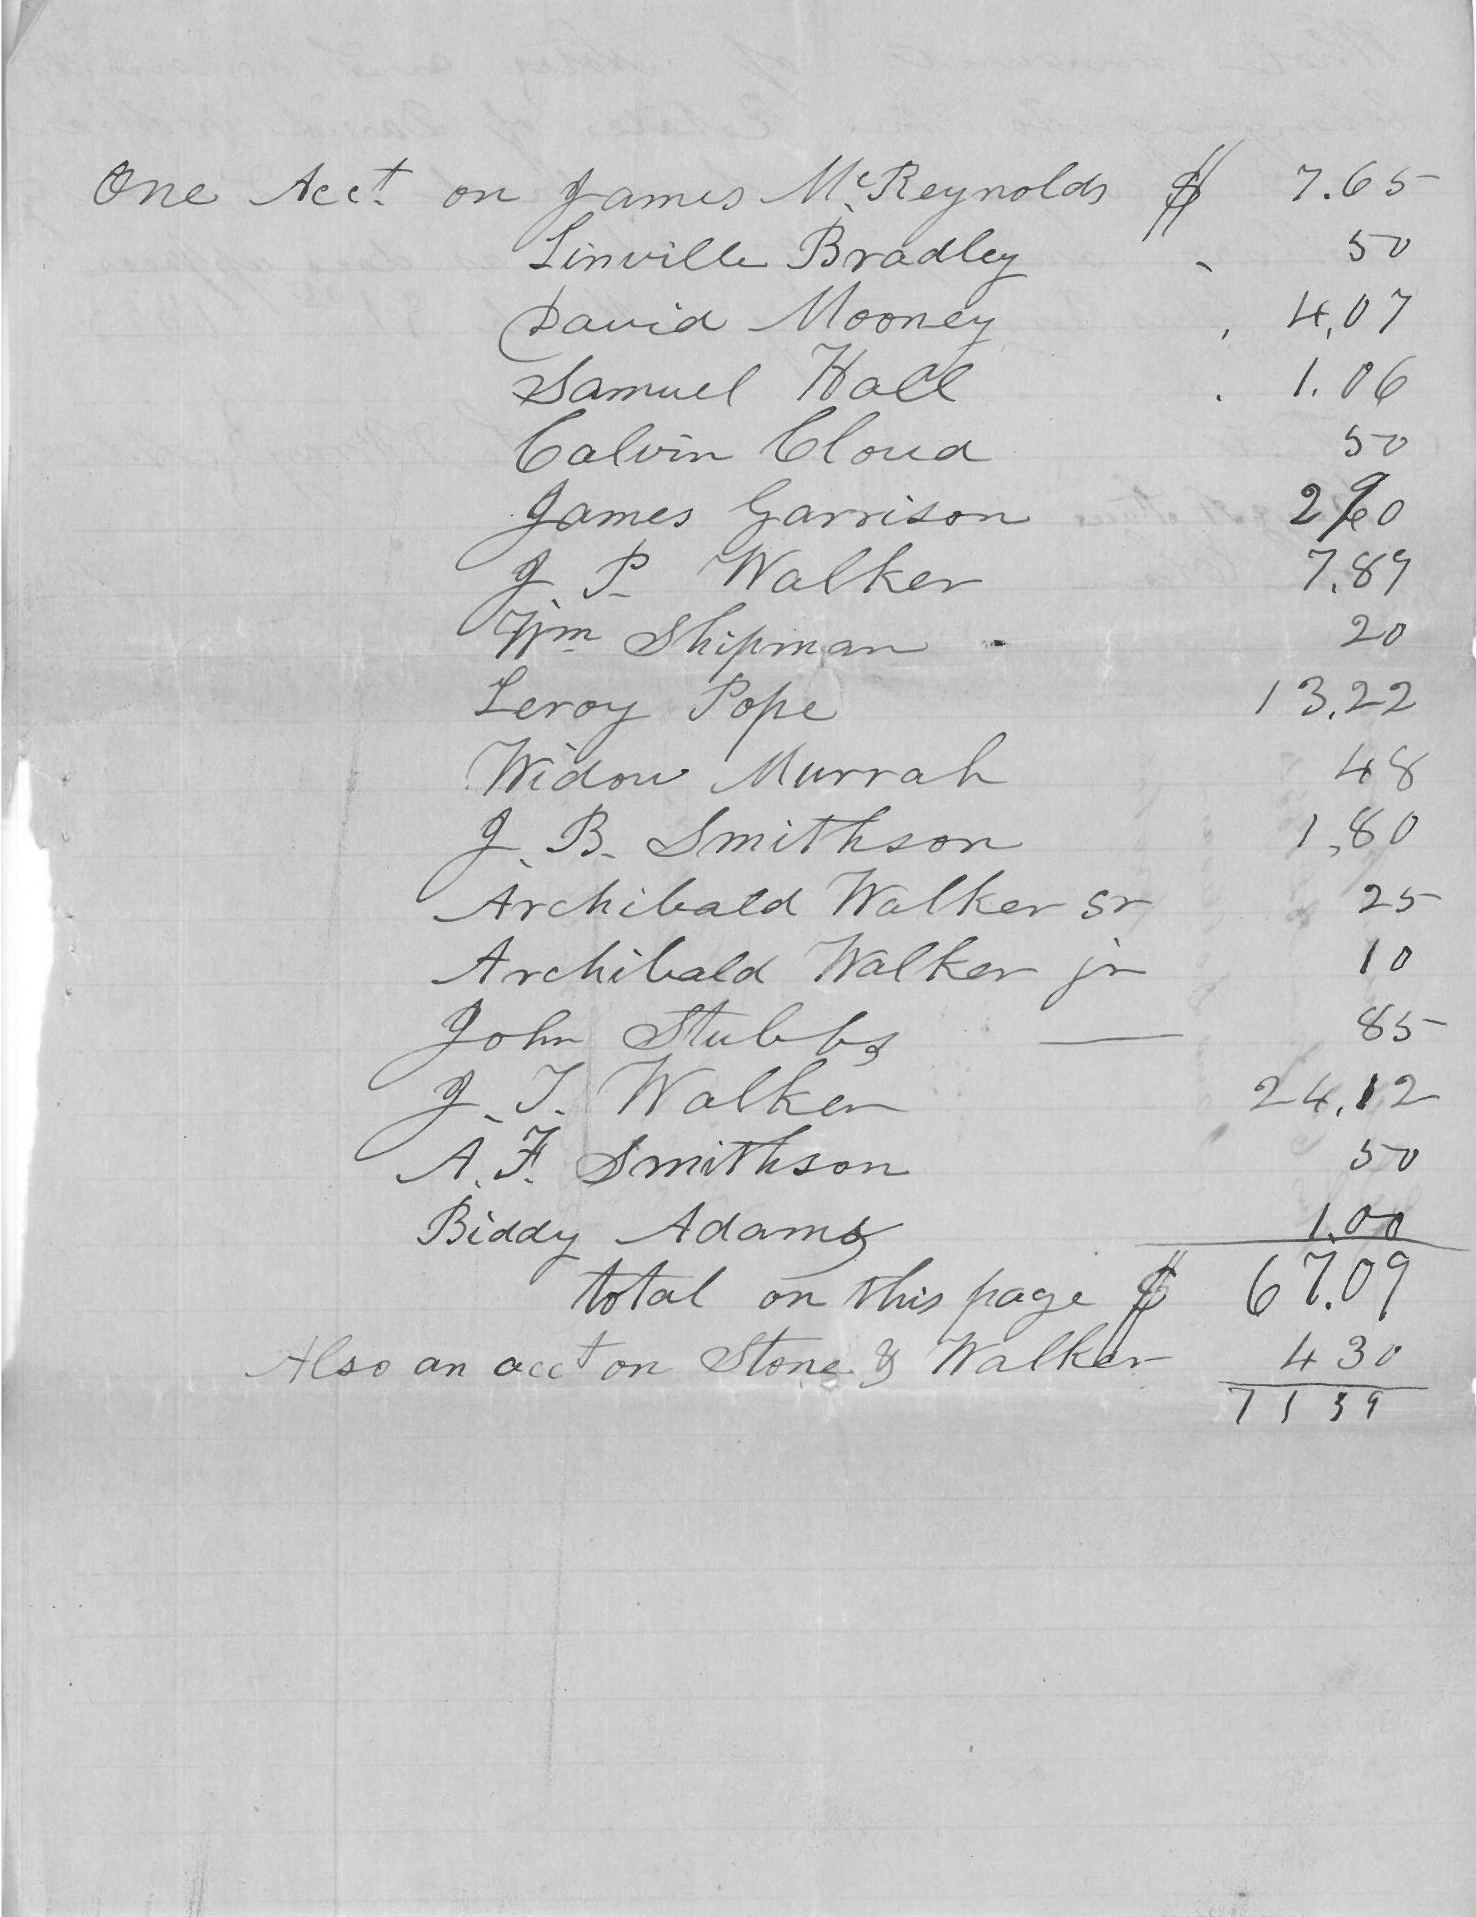 One Acct. on James McReynolds $ 7.65
Linville Bradley 50
David Mooney 4.07
Samuel Hall 1.06
Calvin Cloud 50
James Garrison 290
J. P. Walker 7.89
Wm Shipman 20
Leroy Pope 13.22
Widow Murrah 48
J. B. Smithson 1.80
Archibald Walker sr 25
Archibald Walker jr 10
John Stubbs — 85
J. T. Walker 24.12
A. F. Smithson 50
Biddy Adams 1.00
total on this page $ 67.09
Also an acct on Stone & Walker 430
7139